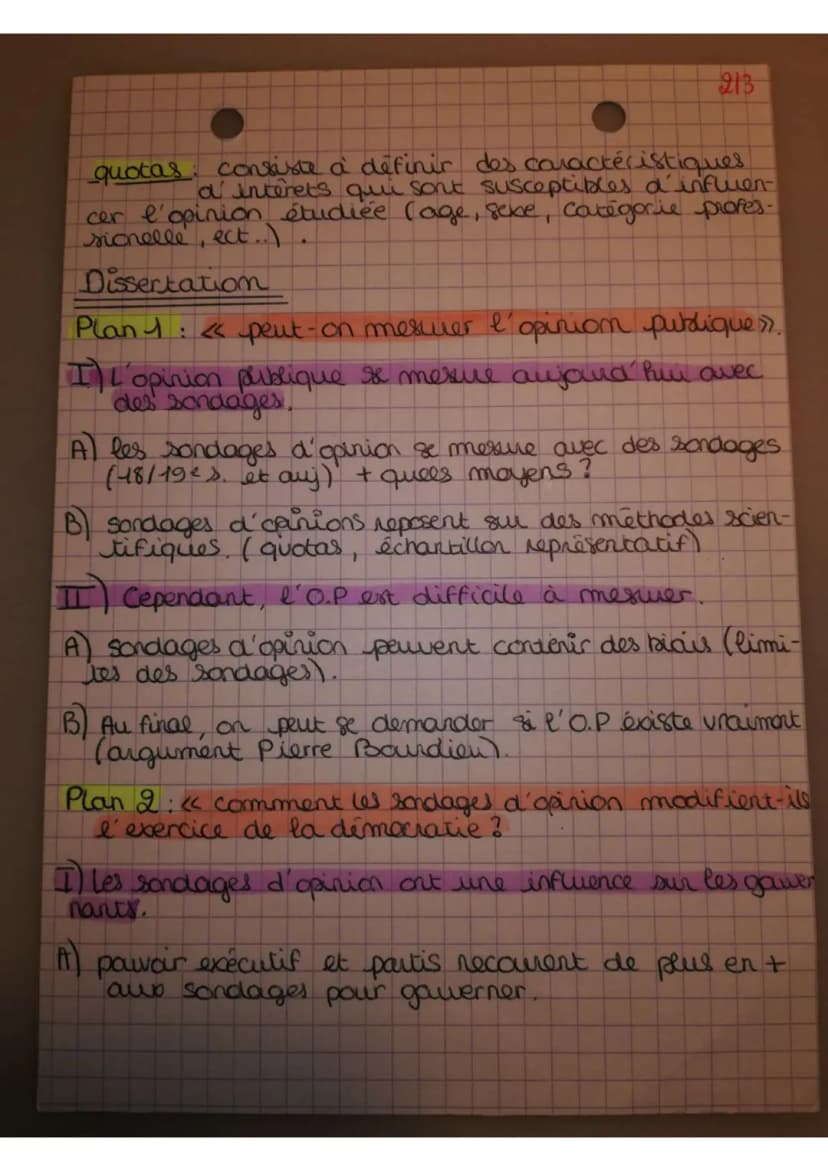 2/3
quotas : consiste à définir des caractéristiques
d'intêrets qui sont susceptibles d'influen-
cer l'opinion étudiée (age, sexe, catégorie profes-
sionelle, ect..).
Dissertation
Plan 1 : « peut-on mesurer l'opinion publique ».
I) L'opinion publique se mesure aujourd'hui avec
des sondages.
A) les sondages d'opinion se mesure avec des sondages
(18/19e s. et auj) + quels moyens ?
B) sondages d'opinions reposent sur des méthodes scien-
tifiques. (quotas, échantillon représentatif)
II) Cependant, l'O.P est difficile à mesurer.
A) sondages d'opinion peuvent contenir des biais (limi-
tes des sondages).
B) Au final, on peut se demander si l'O.P éxiste vraiment
(argument Pierre Bourdieu).
Plan 2 : « comment les sondages d'opinion modifient-ils
l'exercice de la démocratie ?
I) Les sondages d'opinion ont une influence sur les gouver
nants.
A) pouvoir exécutif et partis recourent de plus en +
aux sondages pour gouverner.